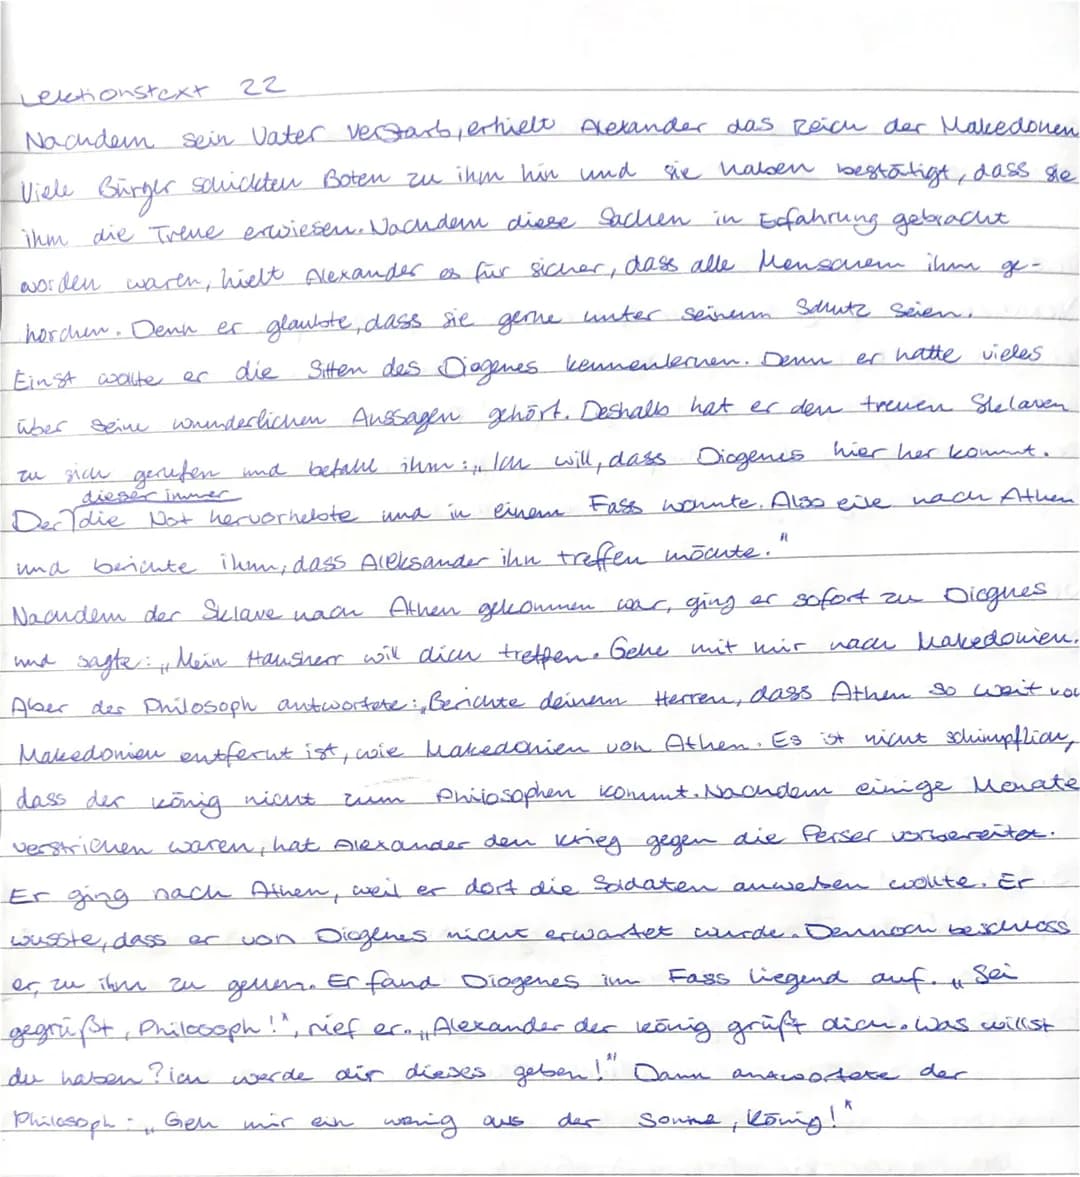 Lektionstext 22
Nachdem sein Vater verstarb, erhielt Alexander das Reich der Makedonen
Viele Bürger schickten Boten zu ihm hin und sie haben bestätigt, dass sie
ihm die Treue erwiesen. Nachdem diese Sachen in Erfahrung gebracht
worden waren, hielt Alexander es für sicher, dass alle Menschen ihm ge-
horchen. Denn er glaubte, dass sie gerne unter seinem Schutz seien.
Einst wollte er die Sitten des Diogenes kennenlernen. Denn er hatte vieles
über seine wunderlichen Aussagen gehört. Deshalb hat er den treuen Sklaven
zu sich gerufen und befahl ihm: „Ich will, dass Diogenes hier her kommt.
dieser immer
Der die Not hervorhebte und in einem Fass wohnte. Also eile nach Athen
und berichte ihm, dass Aleksander ihn treffen möchte."
Nachdem der Sklave nach Athen gekommen war, ging er sofort zu Diognes
und sagte: „Mein Hausherr will dich treffen. Gehe mit mir nach Makedonien.
Aber der Philosoph antwortete: „Berichte deinem Herren, dass Athen so weit von
Makedonien entfernt ist, wie Makedonien von Athen. Es ist nicht schimpflich,
dass der König nicht zum Philosophen kommt. Nachdem einige Monate
verstrichen waren, hat Alexander den Krieg gegen die Perser vorbereitet.
Er ging nach Athen, weil er dort die Soldaten anwerben wollte. Er
wusste, dass er von Diogenes nicht erwartet wurde. Dennoch beschloss
er, zu ihm zu gehen. Er fand Diogenes im Fass liegend auf. „Sei
gegrüßt, Philosoph!", rief er. „Alexander der König grüßt dich. Was willst
du haben? Ich werde dir dieses geben!" Dann antwortete der
Philosoph: „Geh mir ein wenig aus der Sonne, König!"